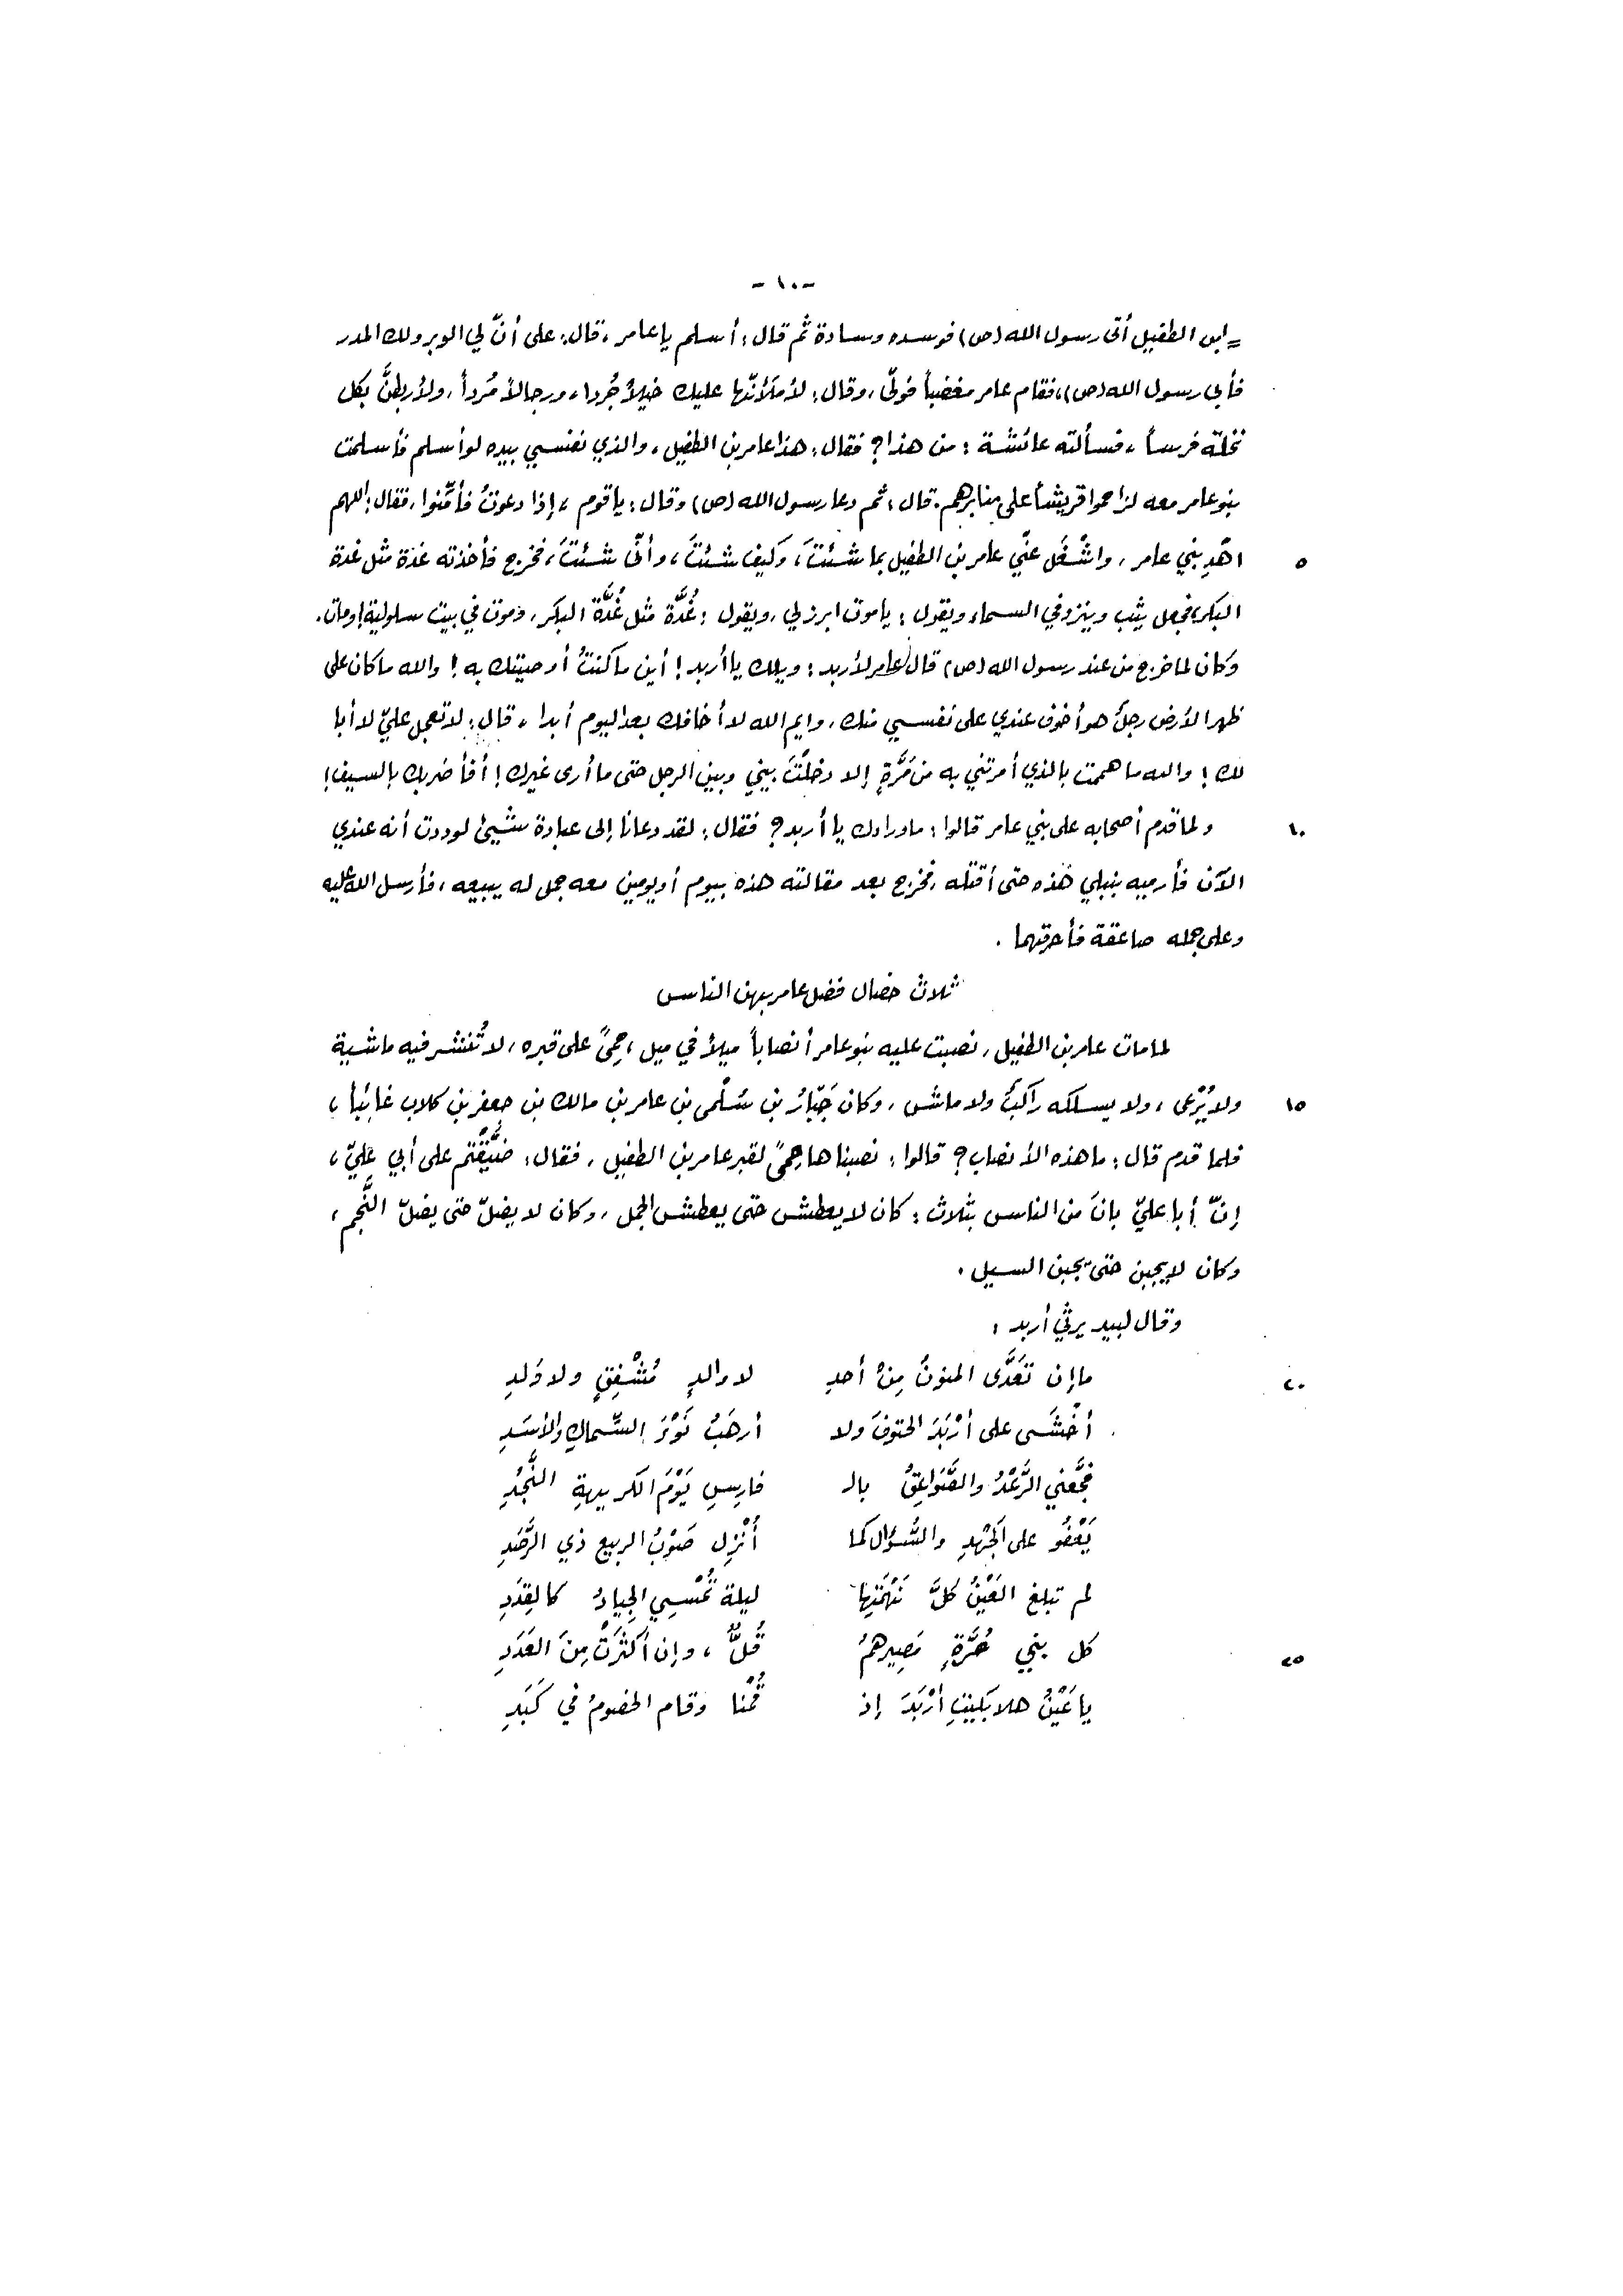 -١٠-
= ابن الطفيل أتى رسول الله (ص) فوسده وسادة ثم قال: أسلم يا عامر، قال: على أنّ لي الوبر ولك المدر
فأبى رسول الله (ص)، فقام عامر مغضباً فولّى، وقال: لأملأنّها عليك خيلاً جُرداً، ورجالاً مُرداً، ولأربطنَّ بكل
نخلة فرساً، فسألته عائشة: من هذا؟ فقال: هذا عامر بن الطفيل، والذي نفسي بيده لو أسلم فأسلمت
بنو عامر معه لزاحموا قريشاً على منابرهم. قال: ثم دعا رسول الله (ص) وقال: يا قوم، إذا دعوتُ فأمِّنوا، فقال: اللهم
٥ اهْدِ بني عامر، واشْغَل عنّي عامر بن الطفيل بما شئتَ، وكيف شئتَ، وأنّى شئتَ، فخرج فأخذته غدة مثل غدة
البكر، فجعل يثب وينزو في السماء ويقول: يا موت ابرز لي، ويقول: غُدَّة مثل غُدَّة البكر، وموت في بيت سلولية! ومات.
وكان لما خرج من عند رسول الله (ص) قال عامر لأربد: ويلك يا أربد! أين ما كنتُ أوصيتك به! والله ما كان على
ظهر الأرض رجلٌ هو أخوف عندي على نفسي منك، وايم الله لا أخافك بعد اليوم أبداً، قال: لا تعجل عليّ لا أبا
لك! والله ما هممت بالذي أمرتني به من مَرَّةٍ إلا دخلْتَ بيني وبين الرجل حتى ما أرى غيرك! أفأضربك بالسيف!
١٠ ولما قدم أصحابه على بني عامر قالوا: ما وراءك يا أربد؟ فقال: لقد دعانا إلى عبادة شيئ لوددت أنه عندي
الآن فأرميه بنبلي هذه حتى أقتله، فخرج بعد مقالته هذه بيوم أو يومين معه جمل له يبيعه، فأرسل الله عليه
وعلى جمله صاعقة فأحرقتهما.
ثلاث خصال فضل عامر بهن الناس
لما مات عامر بن الطفيل، نصبت عليه بنو عامر أنصاباً ميلاً في ميل، حِمىً على قبره، لا تُنشر فيه ماشية
١٥ ولا يُرْعى، ولا يسلكه راكبٌ ولا ماشٍ، وكان جَبّارُ بن سُلْمى بن عامر بن مالك بن جعفر بن كلاب غائباً،
فلما قدم قال: ما هذه الأنصاب؟ قالوا: نصبناها حِمىً لقبر عامر بن الطفيل، فقال: ضَيَّقْتُم على أبي عليّ،
إنّ أبا عليّ بانَ من الناس بثلاث: كان لا يعطش حتى يعطش الجمل، وكان لا يضلّ حتى يضلّ النَّجم،
وكان لا يجبن حتى يجبن السيل.
وقال لبيد يرثي أربد:
٢٠ ما إن تَعَدَّى المنونُ مِنْ أحدٍ لا والدٍ مُشْفِقٍ ولا وَلَدِ
أخْشَى على أرْبَدَ الحتوفَ ولا أرهَبُ نَوْءَ السّماكِ والأسَدِ
فجَّعني الرَّعْدُ والصَّوَاعِقُ بالـ فارِسِ يَوْمَ الكريهةِ النَّجُدِ
يَعْفُو على الجَهْدِ والسُّؤال كما أُنْزِل صَوْبُ الربيع ذي الرَّصَدِ
لم تبلغ العَيْنُ كلَّ نَهْمَتِها ليلة تُمْسِي الجِيادُ كالقِدَدِ
٢٥ كل بني حُرَّةٍ مَصِيرهمُ قُلٌّ، وإن أكثَرَتْ مِنَ العَدَدِ
يا عَيْنُ هلا بَكَيْتِ أرْبَدَ إذ قُمْنا وقام الخصومُ في كَبَدِ